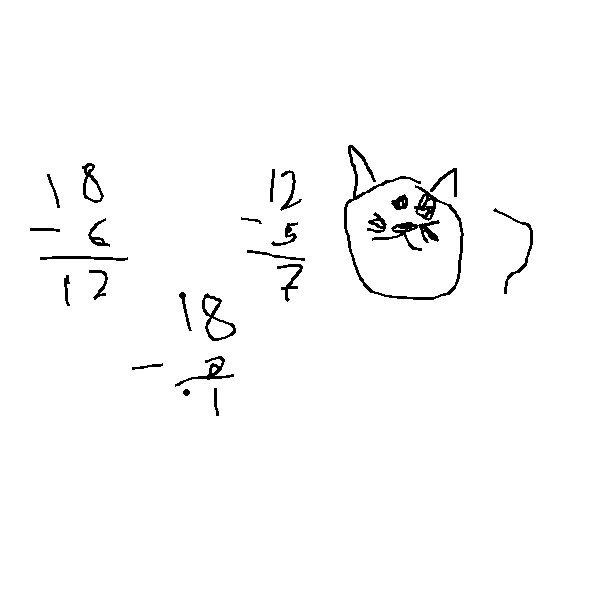 18
- 6
12
12
- 5
7
18
-
1